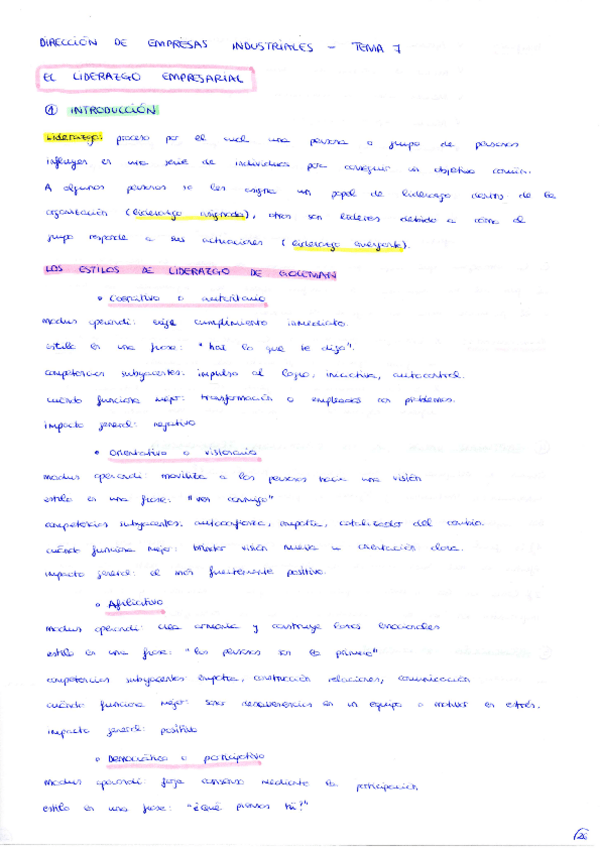 DIRECCIÓN DE EMPRESAS INDUSTRIALES - TEMA 7
EL LIDERAZGO EMPRESARIAL
① INTRODUCCIÓN
Liderazgo: proceso por el cual una persona o grupo de personas
influyen en una serie de individuos para conseguir un objetivo común.
A algunas personas se les asigna un papel de liderazgo dentro de la
organización (liderazgo asignado), otros son líderes debido a cómo el
grupo responde a sus actuaciones (liderazgo emergente).
LOS ESTILOS DE LIDERAZGO DE GOLEMAN
• Coercitivo o autoritario
modus operandi: exige cumplimiento inmediato.
estilo en una frase: "haz lo que te digo".
competencias subyacentes: impulso al logro, iniciativa, autocontrol.
cuándo funciona mejor: transformación o empleados con problemas.
impacto general: negativo
• Orientativo o visionario
modus operandi: moviliza a las personas hacia una visión
estilo en una frase: "ven conmigo"
competencias subyacentes: autoconfianza, empatía, catalizador del cambio.
cuándo funciona mejor: visión nueva u orientación clara.
impacto general: el más fuertemente positivo.
• Afiliativo
modus operandi: crea armonía y construye lazos emocionales
estilo en una frase: "las personas son lo primero"
competencias subyacentes: empatía, construcción relaciones, comunicación
cuándo funciona mejor: sanar desavenencias en un equipo o motivar en estrés.
impacto general: positivo
• Democrático o participativo
modus operandi: forja consenso mediante la participación
estilo en una frase: "¿qué piensas tú?"
26